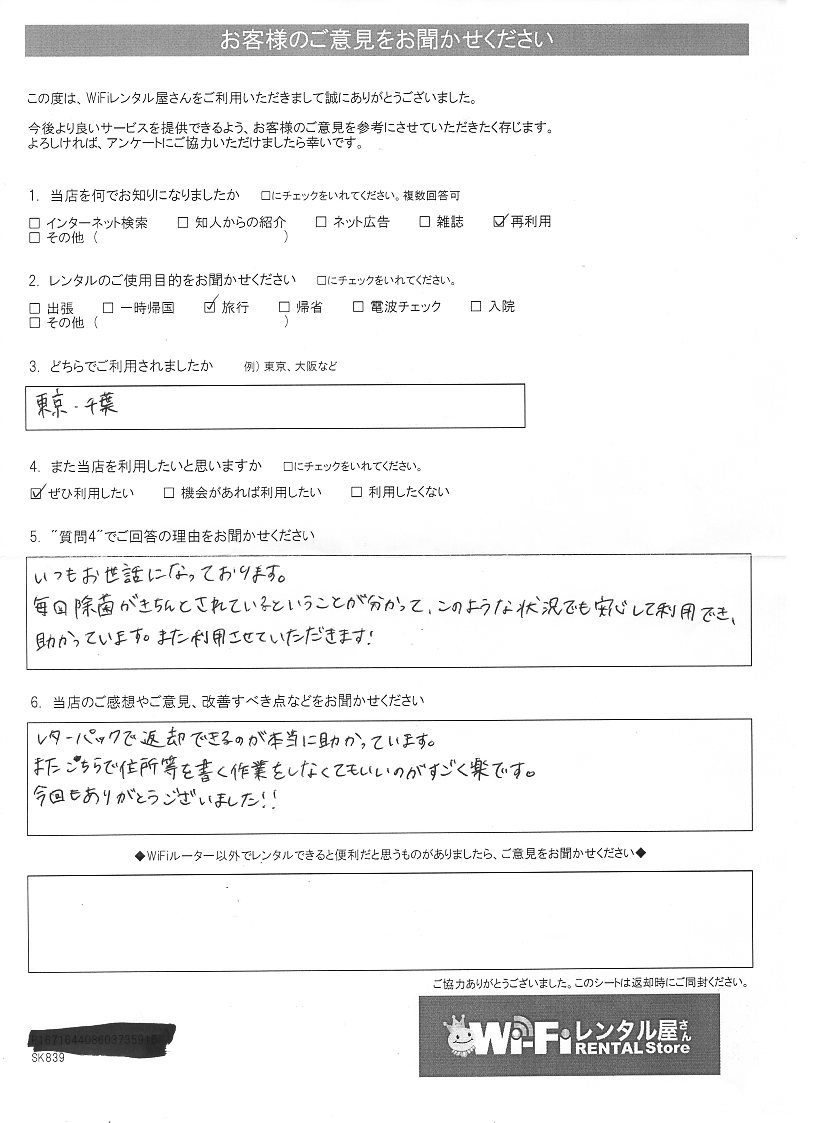 お客様のご意見をお聞かせください
この度は、WiFiレンタル屋さんをご利用いただきまして誠にありがとうございました。
今後より良いサービスを提供できるよう、お客様のご意見を参考にさせていただきたく存じます。
よろしければ、アンケートにご協力いただけましたら幸いです。
1. 当店を何でお知りになりましたか □にチェックをいれてください。複数回答可
□ インターネット検索 □ 知人からの紹介 □ ネット広告 □ 雑誌 ☑ 再利用
□ その他 ( )
2. レンタルのご使用目的をお聞かせください □にチェックをいれてください。
□ 出張 □ 一時帰国 ☑ 旅行 □ 帰省 □ 電波チェック □ 入院
□ その他 ( )
3. どちらでご利用されましたか 例) 東京、大阪など
東京・千葉
4. また当店を利用したいと思いますか □にチェックをいれてください。
☑ ぜひ利用したい □ 機会があれば利用したい □ 利用したくない
5. ~質問4~でご回答の理由をお聞かせください
いつもお世話になっております。
毎回除菌がきちんとされているということが分かって、このような状況でも安心して利用でき、
助かっています。また利用させていただきます!
6. 当店のご感想やご意見、改善すべき点などをお聞かせください
レターパックで返却できるのが本当に助かっています。
またこちらで住所等を書く作業をしなくてもいいのがすごく楽です。
今回もありがとうございました!!
◆WiFiルーター以外でレンタルできると便利だと思うものがありましたら、ご意見をお聞かせください◆
ご協力ありがとうございました。このシートは返却時にご同封ください。
Wi-Fiレンタル屋さん
RENTAL Store
SK839